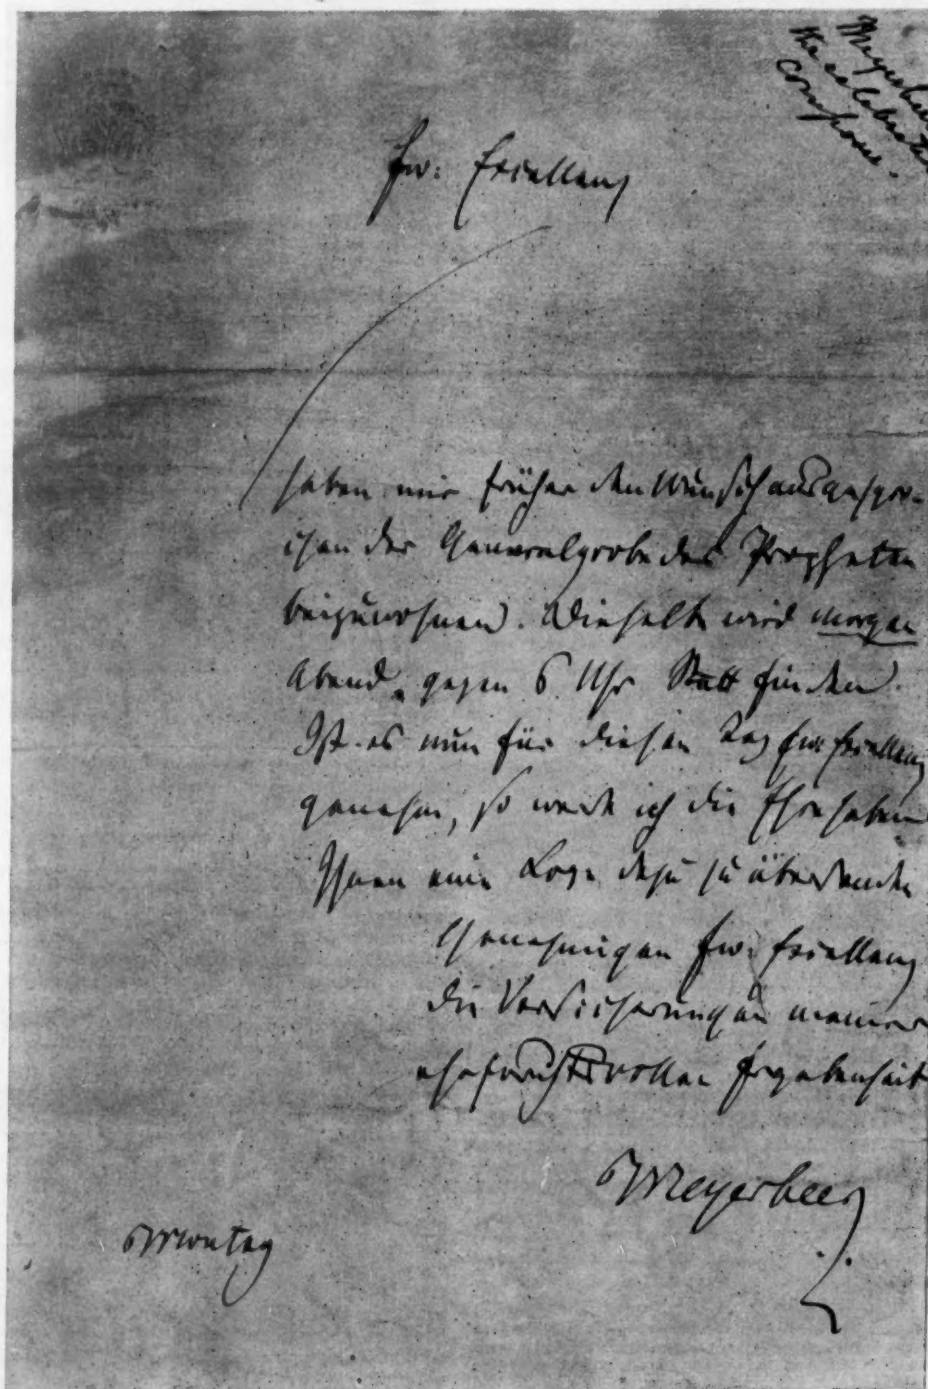 Meyerbeer
the celebrated
composer.
Ew: Excellenz
haben mir früher den Wunsch ausgespro-
chen der Generalprobe des Propheten
beizuwohnen. Dieselbe wird morgen
Abend gegen 6 Uhr Statt finden.
Ist es nun für diesen Tag Ew: Excellenz
genehm, so werde ich die Ehre haben
Ihnen eine Loge dazu zu übersenden
Genehmigen Ew: Excellenz
die Versicherungen meiner
ehrfurchtsvollen Ergebenheit
Meyerbeer
Montag